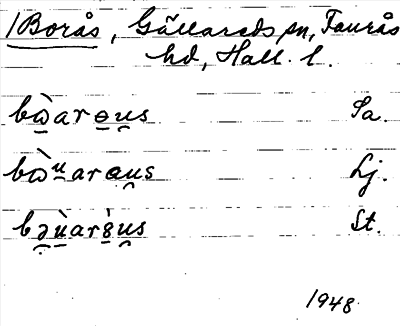 /Borås, Gällareds sn, Faurås
hd, Hall. l.
bὼarɵus Sa.
bὼuaraus Lj.
bəùarṡus St.
1948